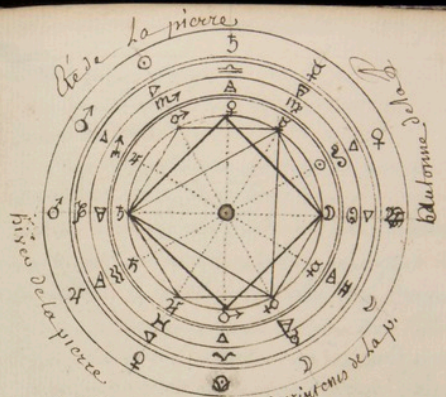 Eté de La pierre
autonne de la
hiver de la pierre
printems de La p.